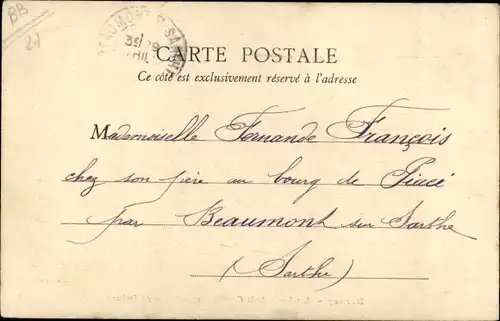 BB
21
CARTE POSTALE
Ce côté est exclusivement réservé à l'adresse
Mademoiselle Fernande François
chez son père au bourg de Piacé
par Beaumont sur Sarthe
(Sarthe)